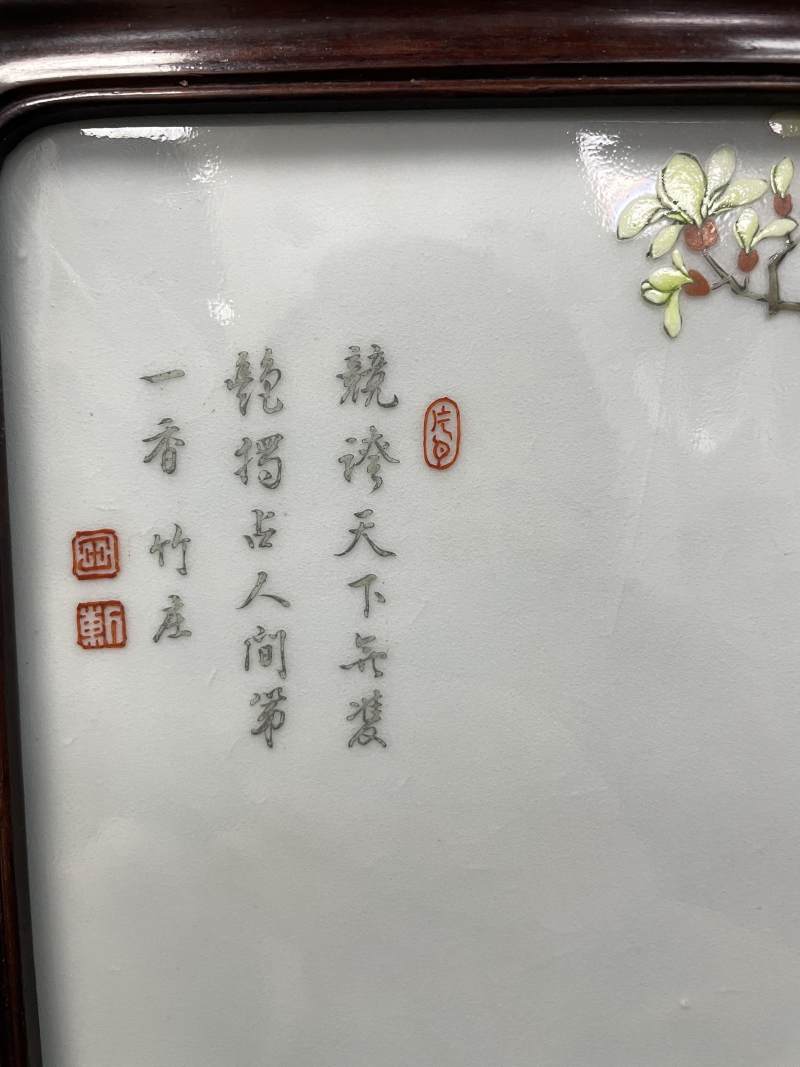 競誇天下無雙
艷獨占人間第
一香 竹庄